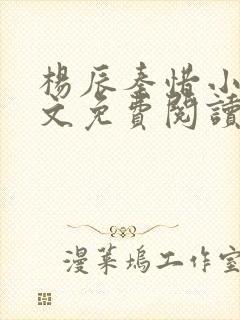 楊辰秦惜小
文免費閱讀
漫葉塢工作室